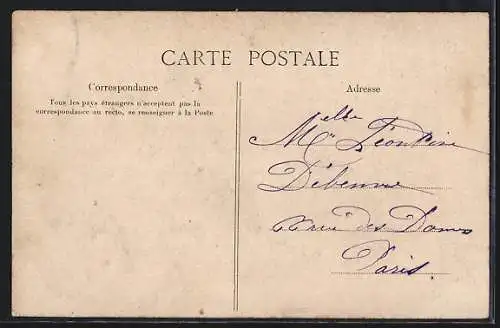 CARTE POSTALE
Correspondance
Tous les pays étrangers n'acceptent pas la
correspondance au recto, se renseigner à la Poste
Adresse
Melle Léontine
rue des Dames
Paris